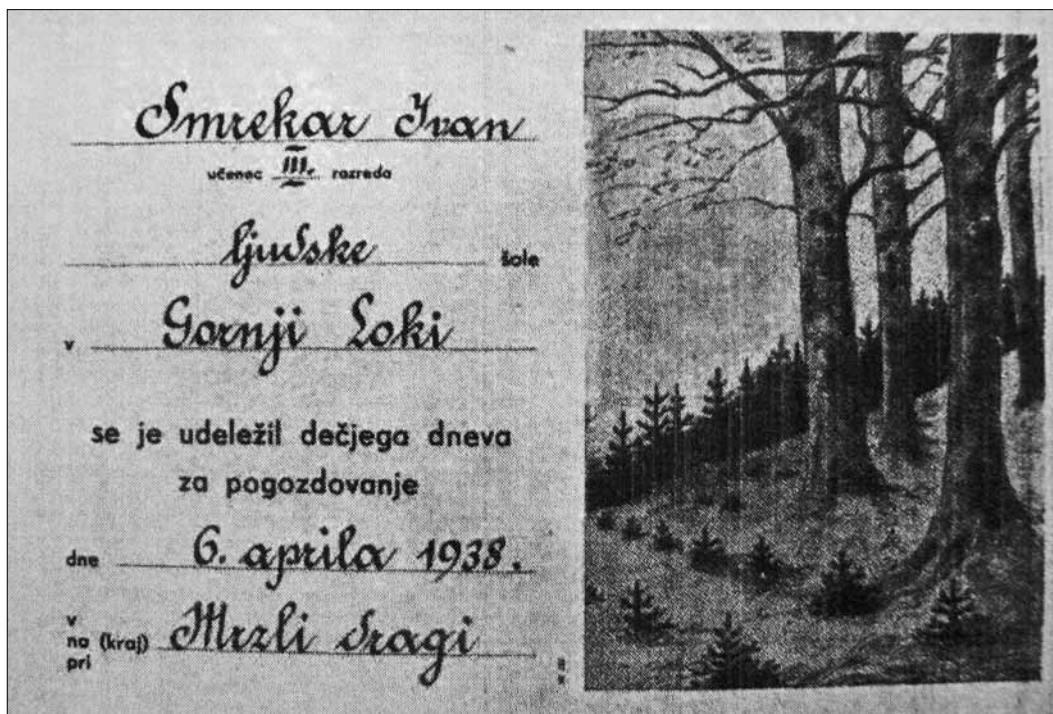 Smrekar Ivan
učenec III. razreda
ljudske šole
v Gornji Loki
se je udeležil dečjega dneva
za pogozdovanje
dne 6. aprila 1938.
v
na (kraj) Mrzli dragi
pri